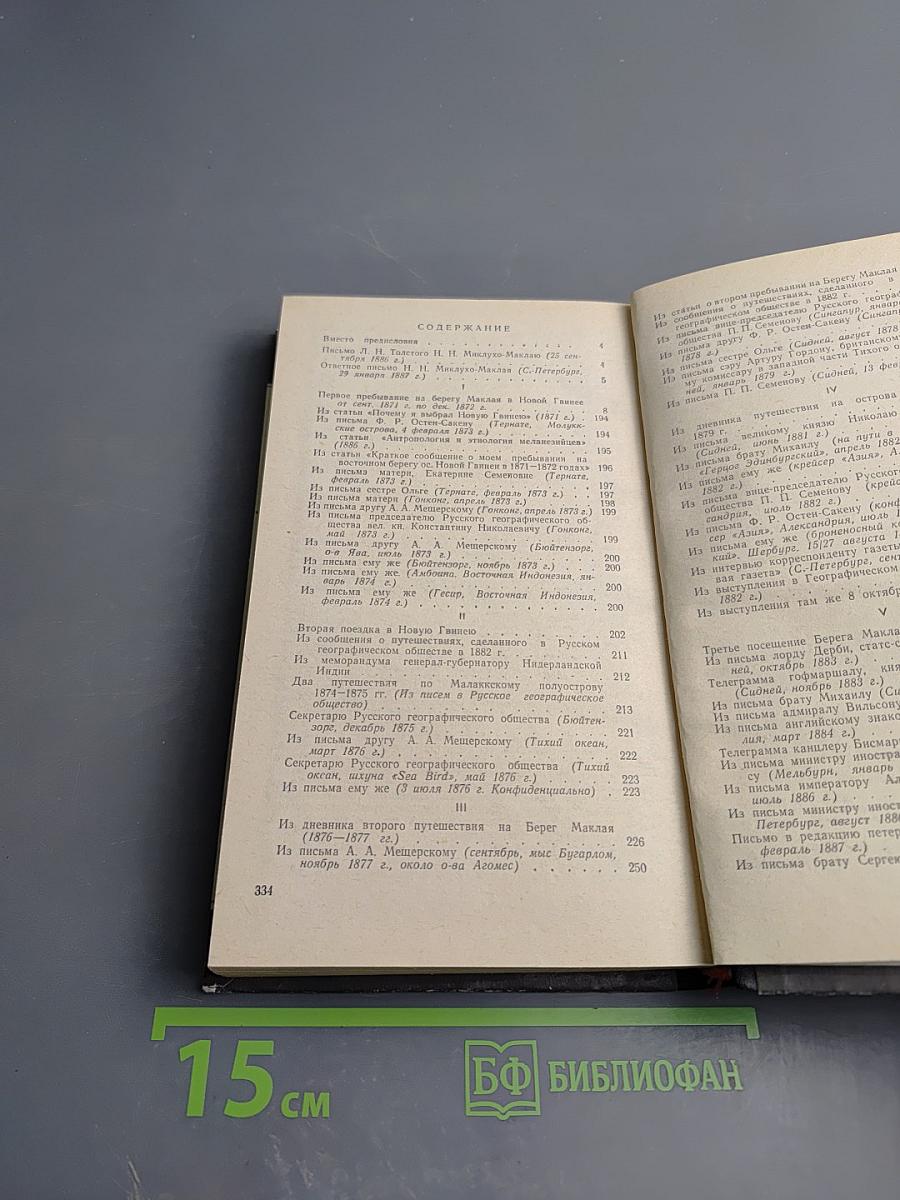 СОДЕРЖАНИЕ
Вместо предисловия . . . . . . . . . . 4
Письмо Л. Н. Толстого Н. Н. Миклухо-Маклаю (25 сен-
тября 1886 г.) . . . . . . . . . . 4
Ответное письмо Н. Н. Миклухо-Маклая (С.-Петербург,
29 января 1887 г.) . . . . . . . . . . 5
I
Первое пребывание на берегу Маклая в Новой Гвинее
от сент. 1871 г. по дек. 1872 г. . . . . . . . 8
Из статьи «Почему я выбрал Новую Гвинею» (1871 г.) . 194
Из письма Ф. Р. Остен-Сакену (Тернате, Молукк-
ские острова, 4 февраля 1873 г.) . . . . . . 194
Из статьи «Антропология и этнология меланезийцев»
(1886 г.) . . . . . . . . . . 195
Из статьи «Краткое сообщение о моем пребывании на
восточном берегу ос. Новой Гвинеи в 1871—1872 годах» 196
Из письма матери, Екатерине Семеновне (Тернате,
февраль 1873 г.) . . . . . . . . . . 197
Из письма сестре Ольге (Тернате, февраль 1873 г.) . . 197
Из письма матери (Гонконг, апрель 1873 г.) . . . . 198
Из письма другу А. А. Мещерскому (Гонконг, апрель 1873 г.) 199
Из письма председателю Русского географического об-
щества вел. кн. Константину Николаевичу (Гонконг,
май 1873 г.) . . . . . . . . . . 199
Из письма другу А. А. Мещерскому (Бюйтензорг,
о-в Ява, июль 1873 г.) . . . . . . . . 200
Из письма ему же (Бюйтензорг, ноябрь 1873 г.) . . . 200
Из письма ему же. (Амбоина, Восточная Индонезия, ян-
варь 1874 г.) . . . . . . . . . . 200
Из письма ему же (Гесир, Восточная Индонезия,
февраль 1874 г.) . . . . . . . . . . 200
II
Вторая поездка в Новую Гвинею . . . . . . . 202
Из сообщения о путешествиях, сделанного в Русском
географическом обществе в 1882 г. . . . . . . 211
Из меморандума генерал-губернатору Нидерландской
Индии . . . . . . . . . . 212
Два путешествия по Малаккскому полуострову
1874—1875 гг. (Из писем в Русское географическое
общество) . . . . . . . . . . 213
Секретарю Русского географического общества (Бюйтен-
зорг, декабрь 1875 г.) . . . . . . . . 221
Из письма другу А. А. Мещерскому (Тихий океан,
март 1876 г.) . . . . . . . . . . 222
Секретарю Русского географического общества (Тихий
океан, шхуна «Sea Bird», май 1876 г.) . . . . . 223
Из письма ему же (3 июля 1876 г. Конфиденциально) . 223
III
Из дневника второго путешествия на Берег Маклая
(1876—1877 гг.) . . . . . . . . . . 226
Из письма А. А. Мещерскому (сентябрь, мыс Бугарлом,
ноябрь 1877 г., около о-ва Агомес) . . . . . . 250
334
Из статьи о втором пребывании на Берегу Маклая
Из сообщения о путешествиях, сделанного в
географическом обществе в 1882 г. . .
Из письма вице-председателю Русского географ
общества П. П. Семенову (Сингапур, январь
Из письма другу Ф. Р. Остен-Сакену (Сингапу
1878 г.) . . .
Из письма сестре Ольге (Сидней, август 1878
Из письма сэру Артуру Гордону, британском
му комиссару в западной части Тихого о
ней, январь 1879 г.) . . .
Из письма П. П. Семенову (Сидней, 13 фев
IV
Из дневника путешествия на острова
1879 г. . . .
Из письма великому князю Николаю
(Сидней, июнь 1881 г.)
Из письма брату Михаилу (на пути в
«Герцог Эдинбургский», апрель 1882
Из письма ему же (крейсер «Азия», А
1882 г.) . . .
Из письма вице-председателю Русского
общества П. П. Семенову (крейс
сандрия, июль 1882 г.) . .
Из письма Ф. Р. Остен-Сакену (конф
сер «Азия», Александрия, июль 1
Из письма ему же (броненосный к
кий». Шербург. 15/27 августа 1
Из интервью корреспонденту газеты
вая газета» (С.-Петербург, сент
Из выступления в Географическом
1882 г.) . . .
Из выступления там же 8 октябр
V
Третье посещение Берега Макла
Из письма лорду Дерби, статс-с
ней, октябрь 1883 г.) . .
Телеграмма гофмаршалу, кня
(Сидней, ноябрь 1883 г.)
Из письма брату Михаилу (Си
Из письма адмиралу Вильсону
Из письма английскому знако
лия, март 1884 г.) . .
Телеграмма канцлеру Бисмар
Из письма министру иностра
су (Мельбурн, январь
Из письма императору Ал
июль 1886 г.) . .
Из письма министру иност
Петербург, август 1886
Письмо в редакцию петер
февраль 1887 г.) .
Из письма брату Сергею
15 см
БФ БИБЛИОФАН